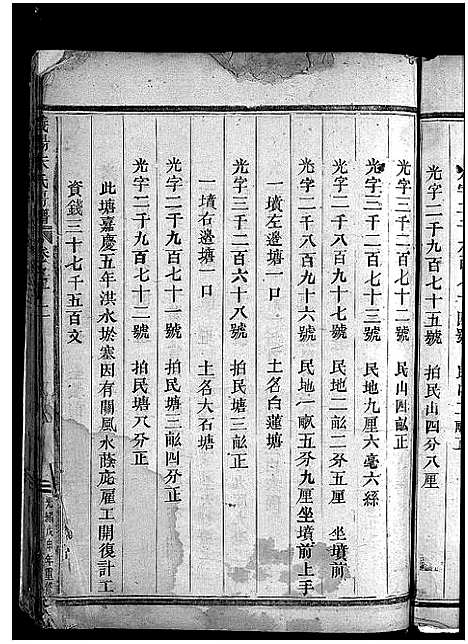 光字二千九百七十五號 拍民山四分八厘
光字三千二百七十二號 民山四畝正
光字三千二百七十三號 民地九厘六毫六絲
光字二千八百九十七號 民地二畝二分五厘 坐墳前
光字二千八百九十六號 民地一畝五分九厘坐墳前上手
一墳左邊塘一口 土名白蓮塘
光字三千二百六十八號 拍民塘三畝正
一墳右邊塘一口 土名大石塘
光字二千九百七十一號 拍民塘三畝四分正
光字二千九百七十二號 拍民塘八分正
此塘嘉慶五年洪水淤塞因有關風水蔭庇雇工開復計工
資錢三十七千五百文